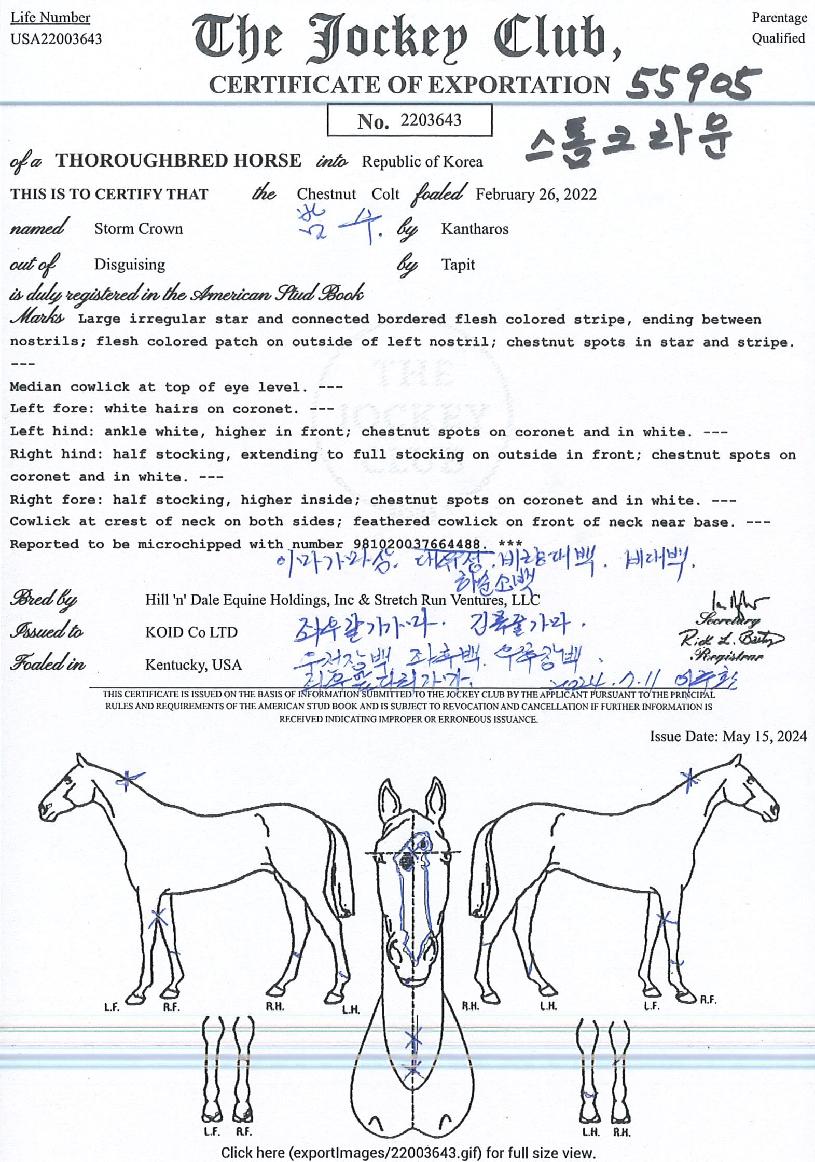 Life Number
USA22003643
The Jockey Club,
Parentage
Qualified
CERTIFICATE OF EXPORTATION 55905
No. 2203643
스톰크라운
of a THOROUGHBRED HORSE into Republic of Korea
THIS IS TO CERTIFY THAT the Chestnut Colt foaled February 26, 2022
named Storm Crown by Kantharos
out of Disguising by Tapit
is duly registered in the American Stud Book
Marks Large irregular star and connected bordered flesh colored stripe, ending between
nostrils; flesh colored patch on outside of left nostril; chestnut spots in star and stripe.
---
THE JOCKEY CLUB
Median cowlick at top of eye level. ---
Left fore: white hairs on coronet. ---
Left hind: ankle white, higher in front; chestnut spots on coronet and in white. ---
Right hind: half stocking, extending to full stocking on outside in front; chestnut spots on
coronet and in white. ---
Right fore: half stocking, higher inside; chestnut spots on coronet and in white. ---
Cowlick at crest of neck on both sides; feathered cowlick on front of neck near base. ---
Reported to be microchipped with number 981020037664488. ***
비대백.
Bred by Hill 'n' Dale Equine Holdings, Inc & Stretch Run Ventures, LLC
Secretary
Issued to KOID Co LTD
Registrar
Foaled in Kentucky, USA
2024. 7. 11
THIS CERTIFICATE IS ISSUED ON THE BASIS OF INFORMATION SUBMITTED TO THE JOCKEY CLUB BY THE APPLICANT PURSUANT TO THE PRINCIPAL
RULES AND REQUIREMENTS OF THE AMERICAN STUD BOOK AND IS SUBJECT TO REVOCATION AND CANCELLATION IF FURTHER INFORMATION IS
RECEIVED INDICATING IMPROPER OR ERRONEOUS ISSUANCE.
Issue Date: May 15, 2024
L.F. R.F. R.H. L.H. R.H. L.H. L.F. R.F.
L.F. R.F. L.H. R.H.
Click here (exportImages/22003643.gif) for full size view.